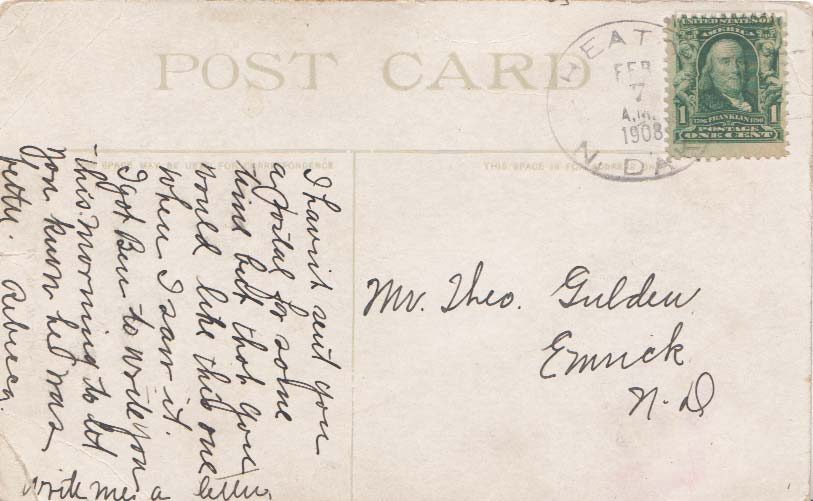 POST CARD
HEAT
FEB
7
A.M.
1908
N. DA
UNITED STATES OF
AMERICA
1 1
FRANKLIN
POSTAGE
ONE CENT
SPACE MAY BE USED FOR CORRESPONDENCE
THIS SPACE IS FOR ADDRESS ON
I havn't sent you
a postal for some
time but thot you
would like this one
when I saw it.
I got Ben to write you
this morning to let
you know he was
better. Rebecca.
write me a letter
Mr. Theo. Gulden
Emrick
N. D